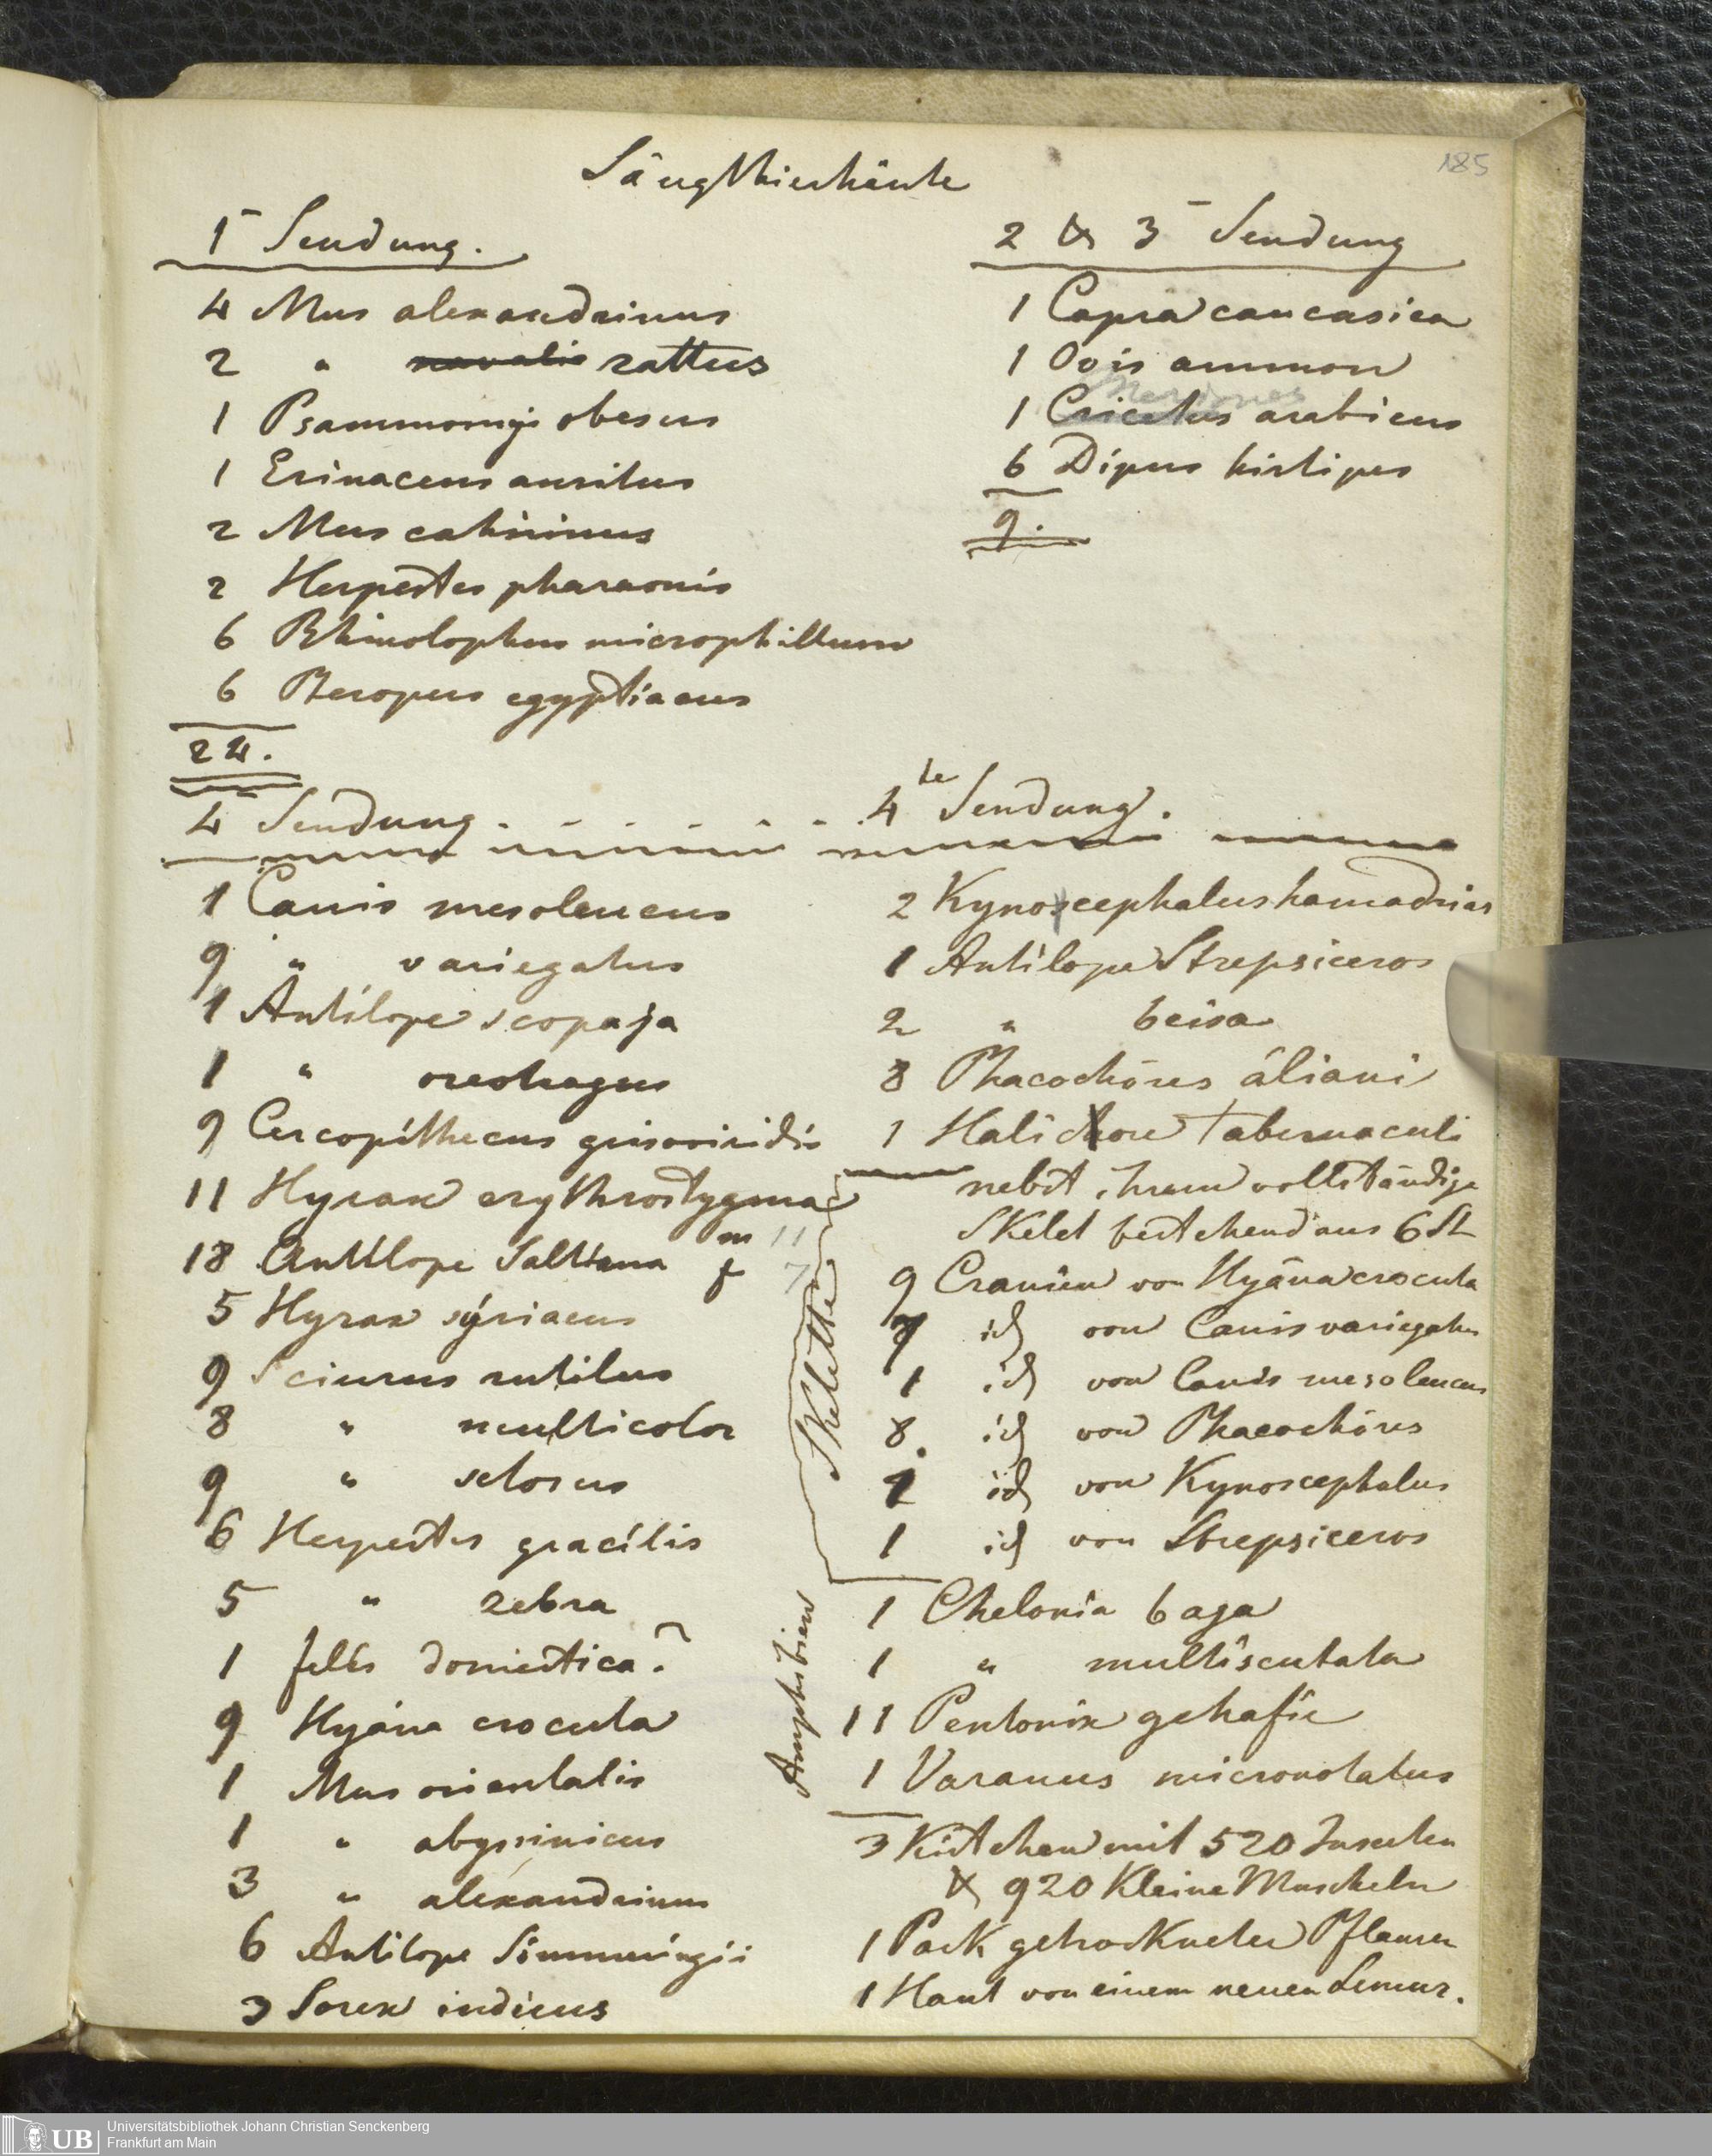 185
Säugthierhäute
1 Sendung.
4 Mus alexandrinus
2 " navalis rattus
1 Psammomys obesus
1 Erinaceus auritus
2 Mus cahirinus
2 Herpestes pharaonis
6 Rhinolophus microphillum
6 Pteropus egyptiacus
24.
2 & 3 Sendung
1 Capra caucasica
1 Ovis ammon
Meriones
1 Cricetus arabicus
6 Dipus hirtipes
9.
4 Sendung . . . . . .
1 Canis mesoleucus
9 " variegatus
1 Antilope scopaja
1 " oreotragus
9 Cercopithecus griseoviridis
11 Hyrax erythrostygma
18 Antilope Saltiana m 11
f 7
5 Hyrax syriacus
9 Sciurus rutilus
8 " multicolor
9 " setosus
6 Herpestes gracilis
5 " zebra
1 felis domestica?
9 Hyäna crocuta
1 Mus orientalis
1 " abyssinicus
3 " alexandrinus
6 Antilope Sömmeringii
3 Sorex indicus
4te Sendung.
2 Kynoscephalus hamadrias
1 Antilope Strepsiceros
2 " beisa
8 Phacochörus äliani
1 Halichore Tabernaculi
nebst ihrem vollständige
Skelet bestehend aus 6 St
Skelette
9 Cranien von Hyäna crocuta
7 id von Canis variegatus
1 id von Canis mesoleucus
8. id von Phacochörus
2 id von Kynoscephalus
1 id von Strepsiceros
Amphibien
1 Chelonia baga
1 " multiscutata
11 Pentonix gehafie
1 Varanus micronotatus
3 Kistchen mit 520 Insecten
& 920 Kleine Muscheln
1 Pack getrockneter Pflanzen
1 Haut von einem neuen Lemur.
UB Universitätsbibliothek Johann Christian Senckenberg
Frankfurt am Main